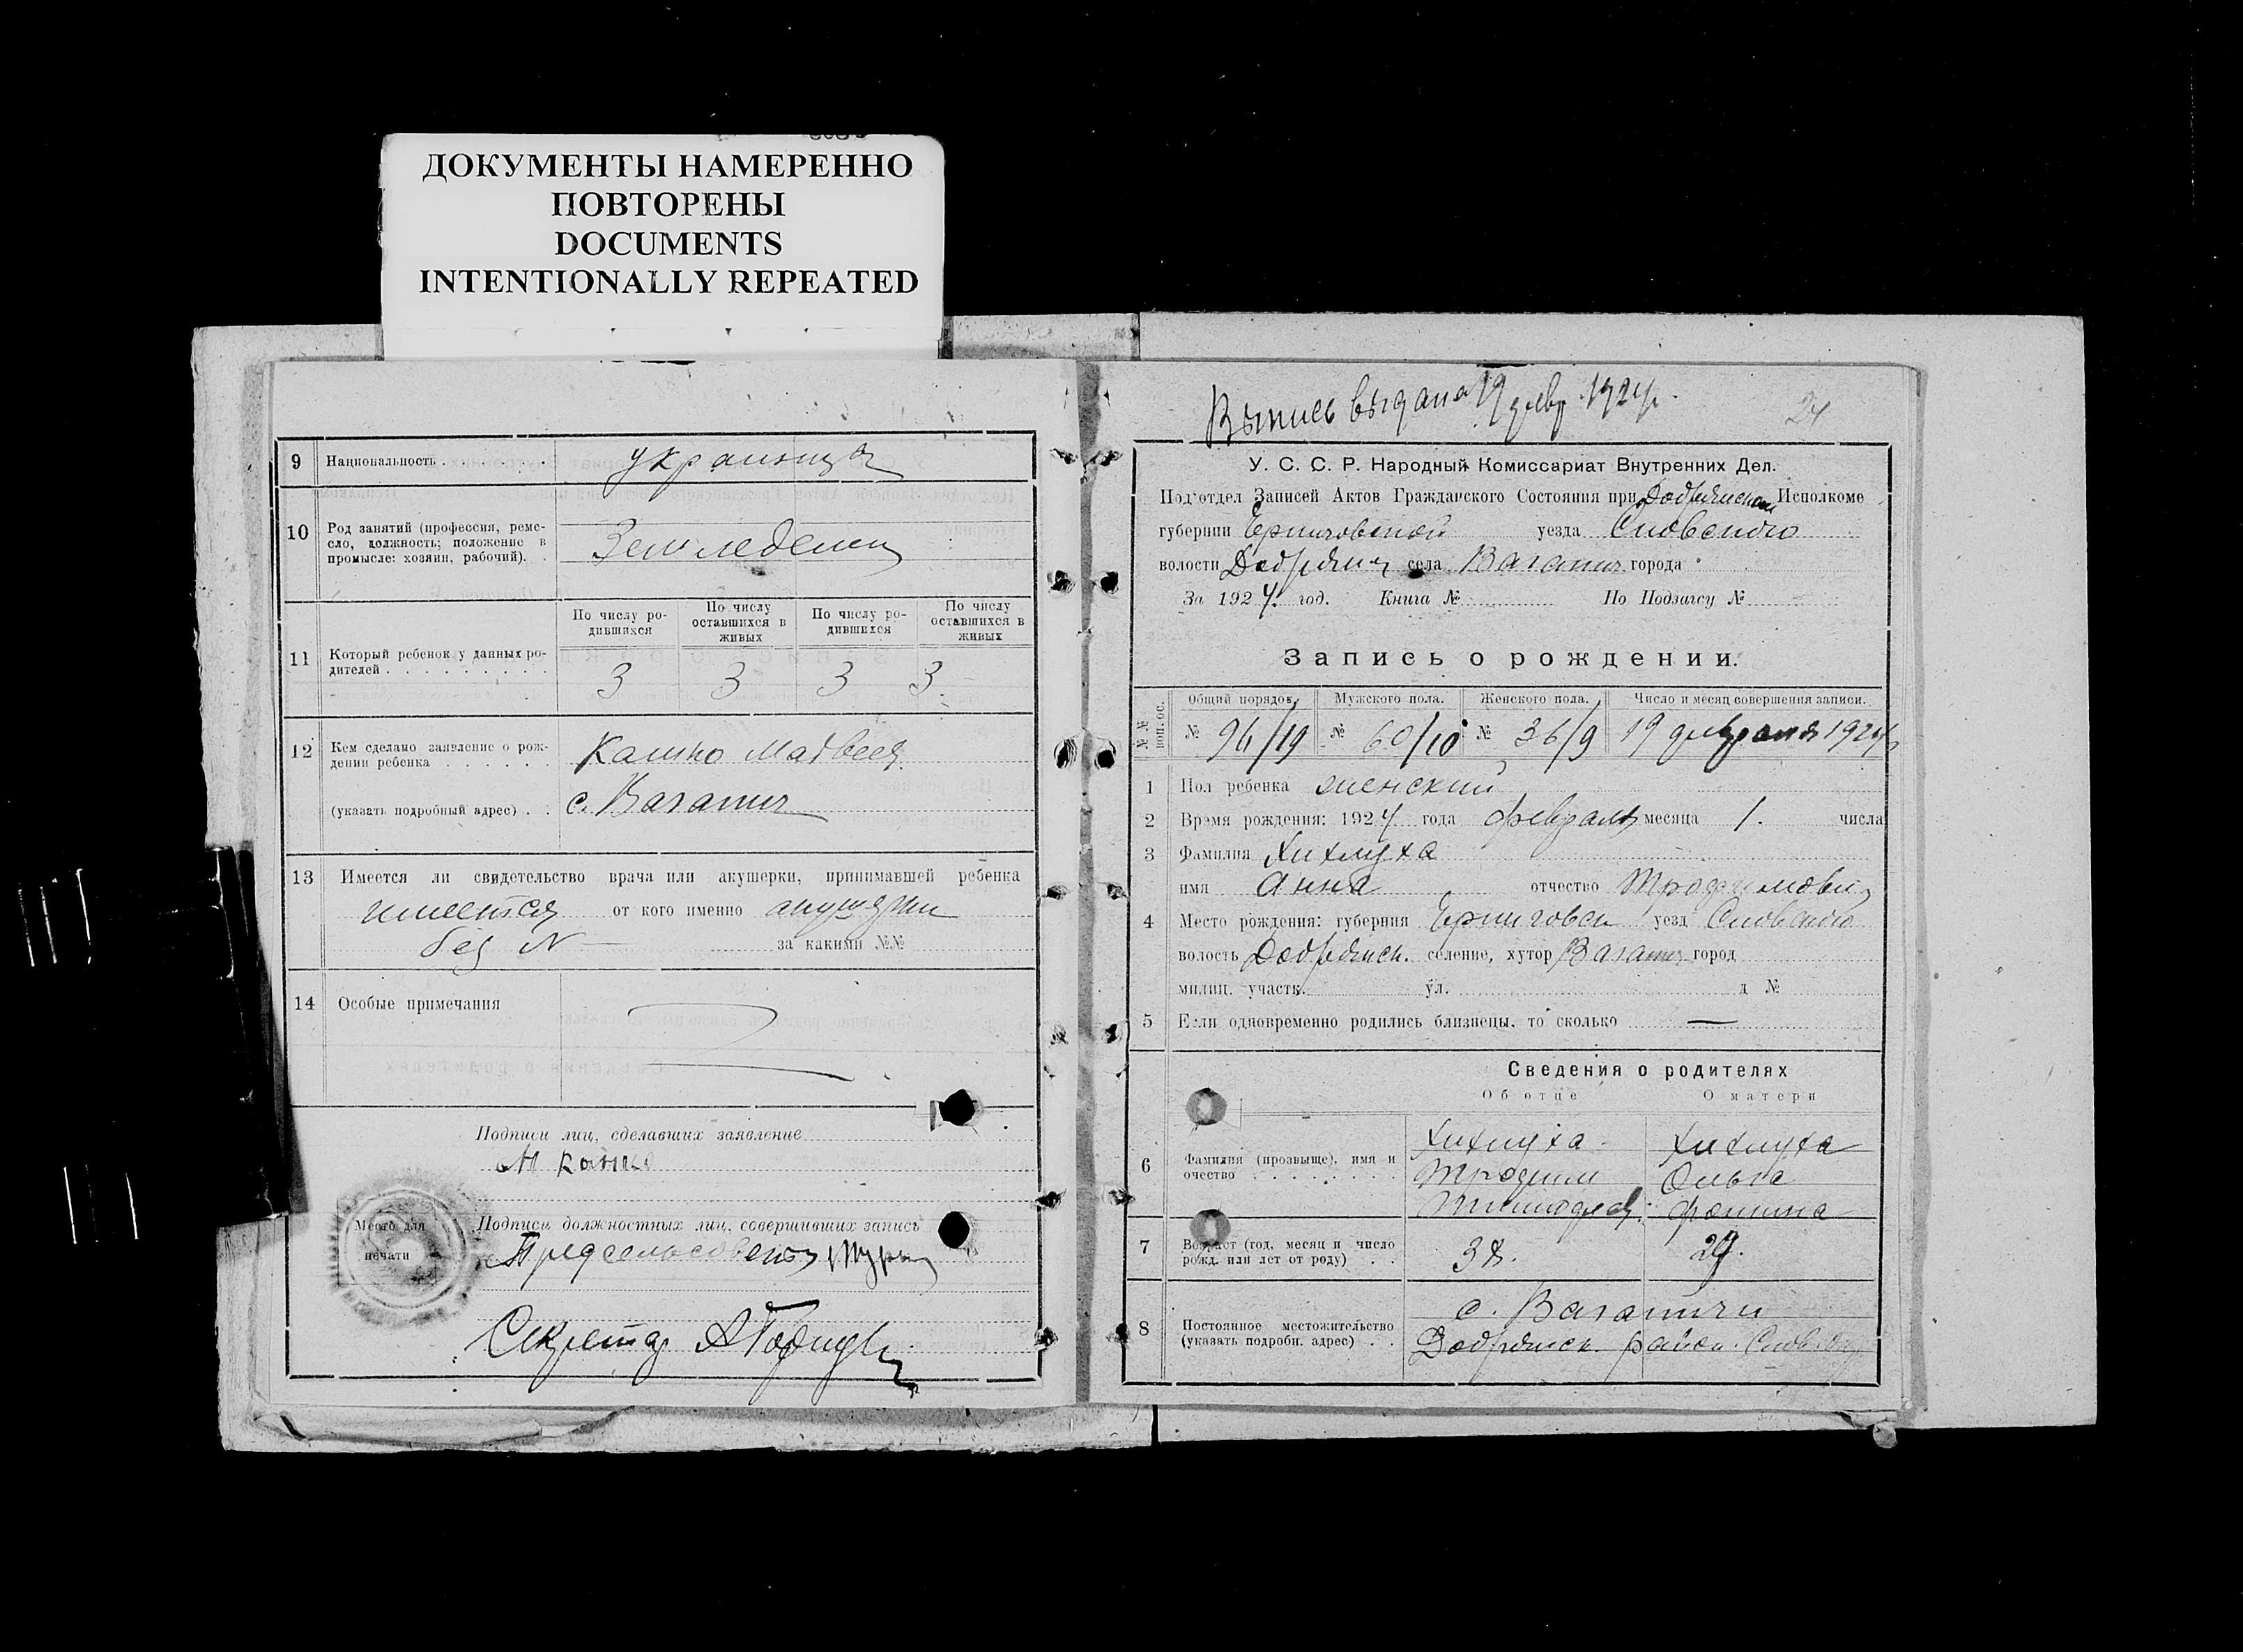 ДОКУМЕНТЫ НАМЕРЕННО
ПОВТОРЕНЫ
DOCUMENTS
INTENTIONALLY REPEATED
9 Национальность . . . . . . украинца
10 Род занятий (профессия, ремес-
сло, должность; положение в
промысле: хозяин, рабочий). .
Земледелец
По числу ро-
дившихся
По числу
оставшихся в
живых
По числу ро-
дившихся
По числу
оставшихся в
живых
11 Который ребенок у данных ро-
дителей . . . . . . . . . .
3 3 3 3
12 Кем сделано заявление о рож-
дении ребенка . . . . . .
Матвеем
(указать подробный адрес) . . с. Вагани
13 Имеется ли свидетельство врача или акушерки, принимавшей ребенка
имеется от кого именно акушерки
без № за какими №№
14 Особые примечания
Подписи лиц, сделавших заявление
Место для
печати
Подписи должностных лиц, совершивших запись
Предсельсовета
Секретар
Выпись выдана 19 февр. 1924 г.
24
У. С. С. Р. Народный Комиссариат Внутренних Дел.
Под‘отдел Записей Актов Гражданского Состояния при Исполкоме
губернии Черниговской уезда Сновского
волости Добрянск села города
За 1924 год. Книга № По Подзагсу №
Запись о рождении.
№ № воп.ос.
Общий порядок. Мужского пола. Женского пола. Число и месяц совершения записи.
№ 94/19 № 60/10 № 36/9 19 февраля 1924
1 Пол ребенка женский
2 Время рождения: 1924 года февраля месяца 1. числа
3 Фамилия Хихлуха
имя Анна отчество Трофимовн
4 Место рождения: губерния Черниговск уезд Сновского
волость Добрянск. селение, хутор город
милиц. участк. ул. д №
5 Если одновременно родились близнецы, то сколько —
Сведения о родителях
Об отце О матери
6 Фамилия (прозвыще), имя и
очество . . . . . . . .
Хихлуха Хихлуха
Трофим Ольга
Фомина
7 Возраст (год, месяц и число
рожд. или лет от роду) . .
38. 29.
8 Постоянное местожительство
(указать подробн. адрес) . .
с. Ваганичи
Добрянск. район.